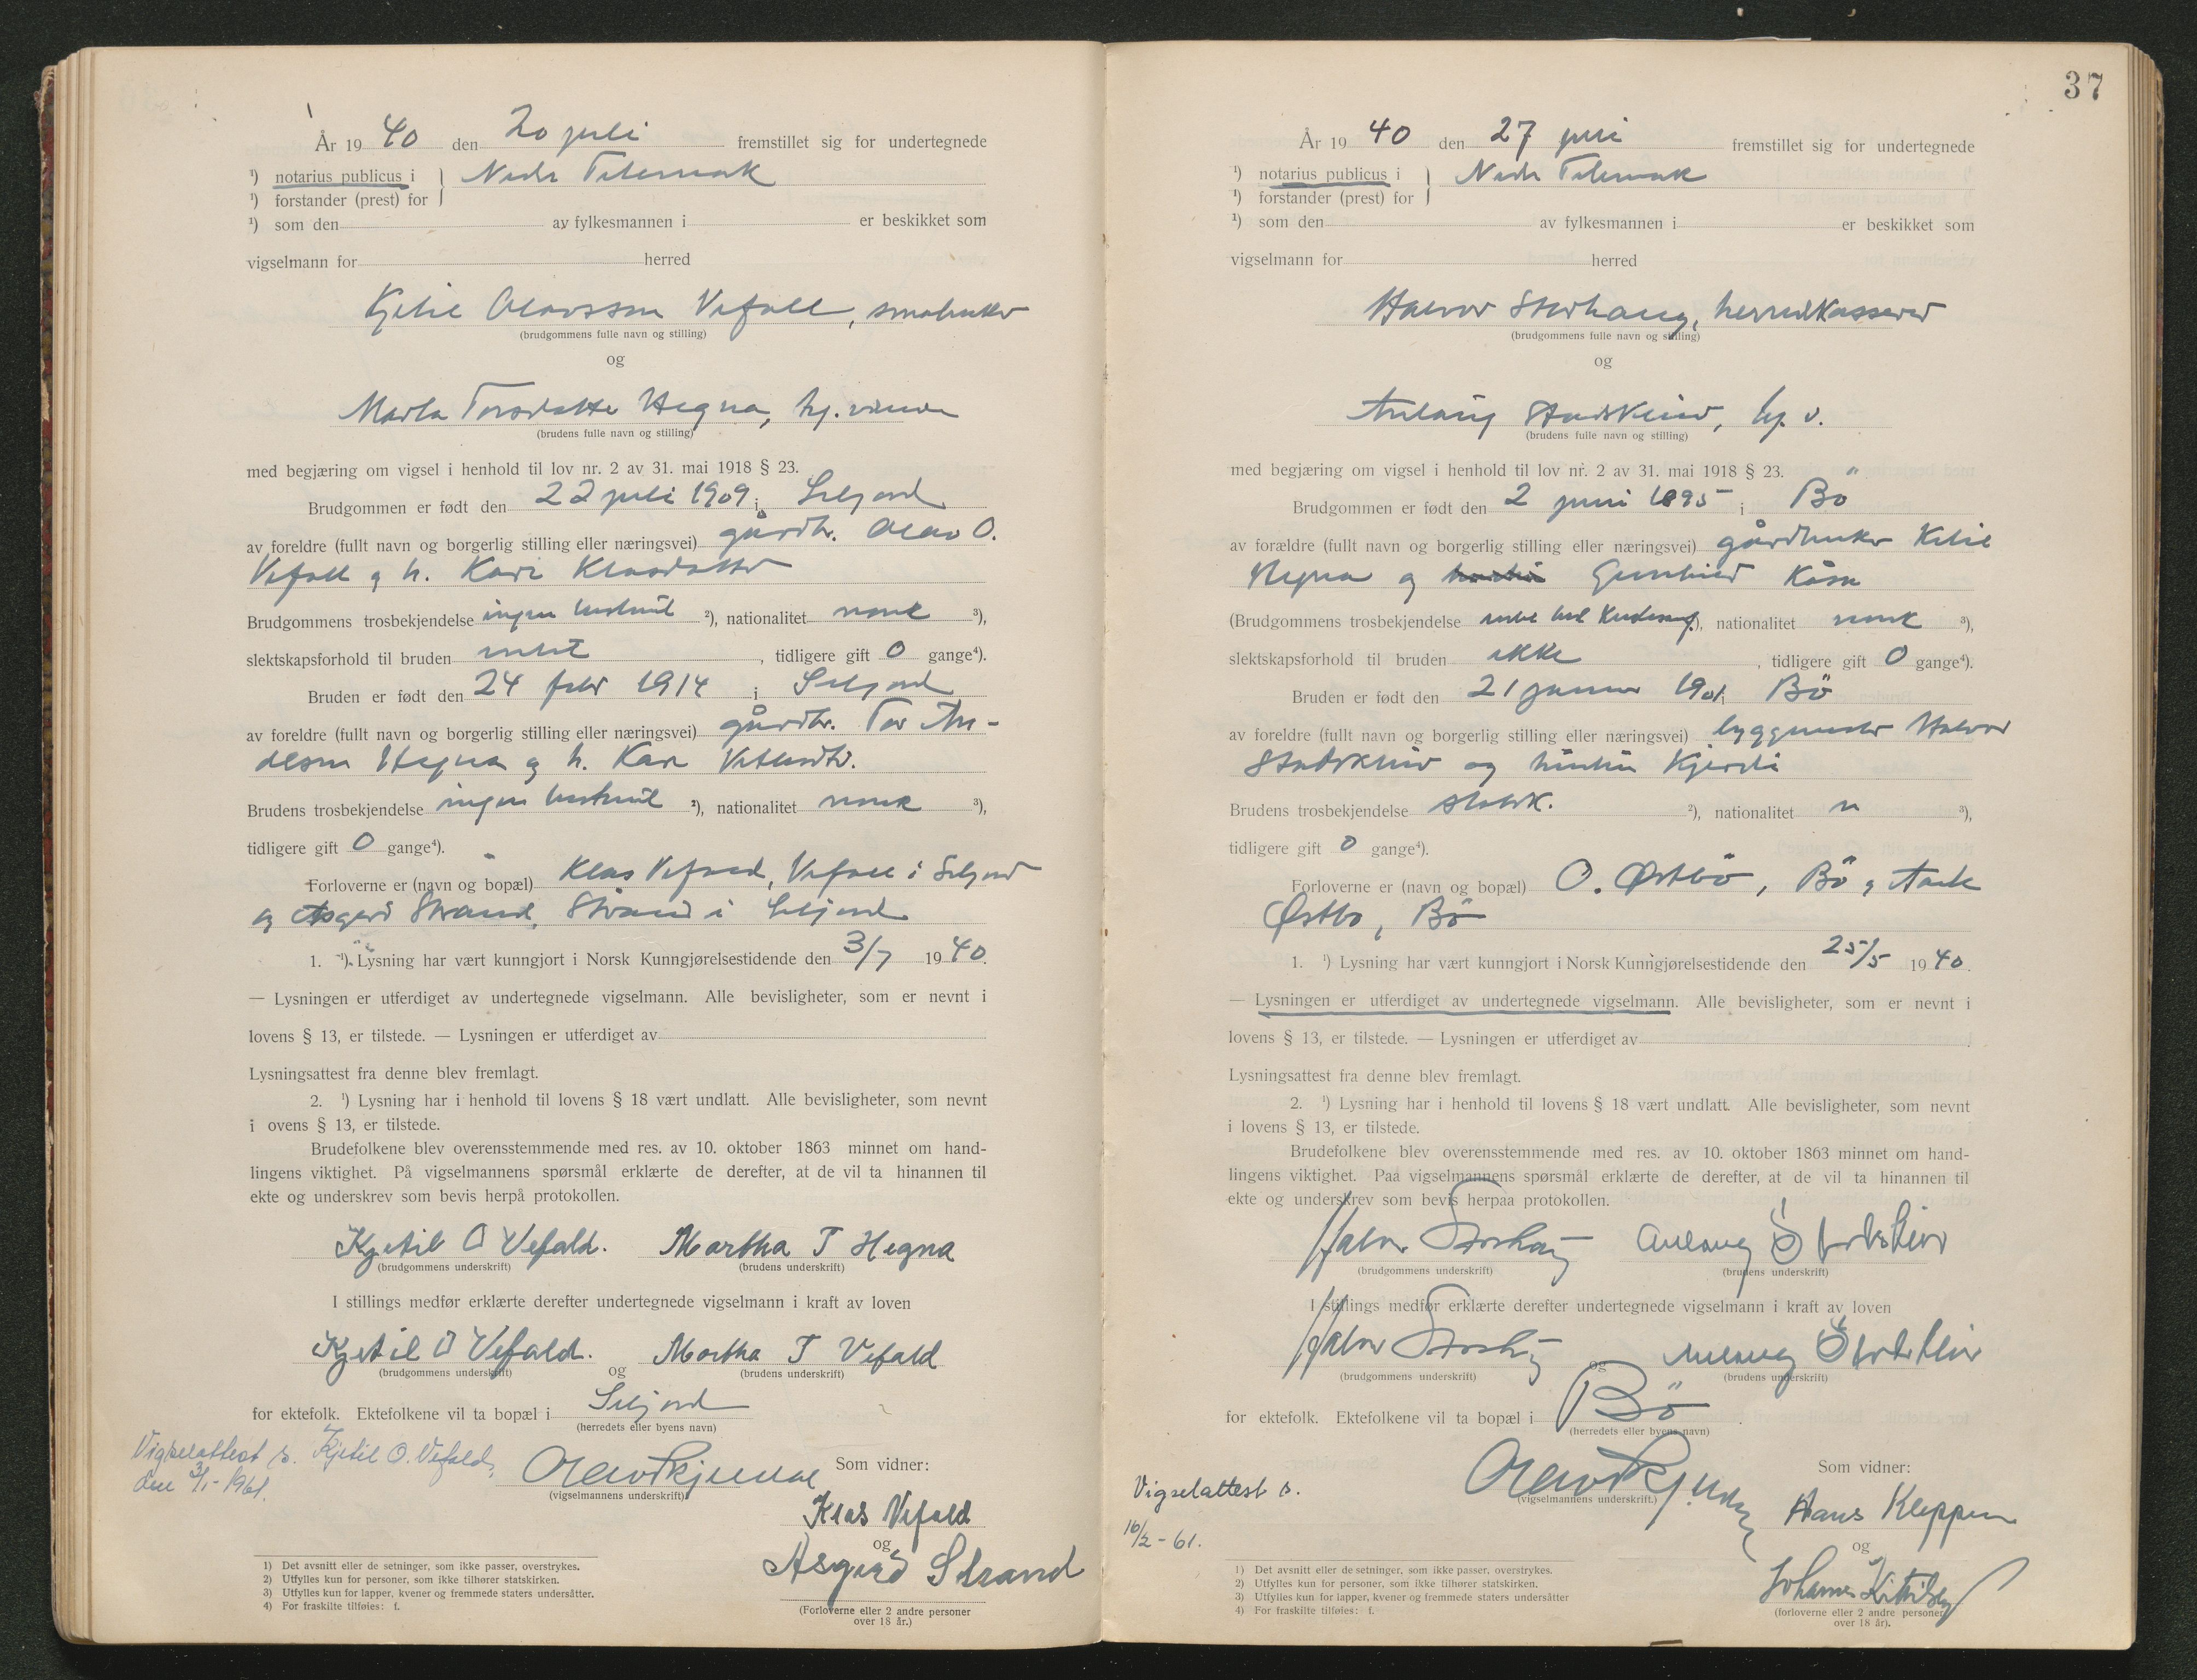 År 19 40 den 20 juli fremstillet sig for undertegnede
¹) notarius publicus i
¹) forstander (prest) for
Nedr Telemark
¹) som den av fylkesmannen i er beskikket som
vigselmann for herred
Olavsson Vefall, småbruker
(brudgommens fulle navn og stilling)
og
Marta Torsdatter Hegna, hj.
(brudens fulle navn og stilling)
med begjæring om vigsel i henhold til lov nr. 2 av 31. mai 1918 § 23.
Brudgommen er født den 22 juli 1909 i Seljord
av foreldre (fullt navn og borgerlig stilling eller næringsvei) gårdbr. Olav O.
Vefall og h. Kari Klasdatter
Brudgommens trosbekjendelse ingen ²), nationalitet norsk ³),
slektskapsforhold til bruden intet, tidligere gift 0 gange⁴).
Bruden er født den 24 febr 1914 i Seljord
av foreldre (fullt navn og borgerlig stilling eller næringsvei) gårdbr. Tor An-
dersen Hegna og h. Kari
Brudens trosbekjendelse ingen ²), nationalitet norsk ³),
tidligere gift 0 gange⁴).
Forloverne er (navn og bopæl) Klas Vefald, Vefall i Seljord
og Asgerd Strand, Strand i Seljord
1. ¹) Lysning har vært kunngjort i Norsk Kunngjørelsestidende den 3/7 1940.
— Lysningen er utferdiget av undertegnede vigselmann. Alle bevisligheter, som er nevnt i
lovens § 13, er tilstede. — Lysningen er utferdiget av
Lysningsattest fra denne blev fremlagt.
2. ¹) Lysning har i henhold til lovens § 18 vært undlatt. Alle bevisligheter, som nevnt
i ovens § 13, er tilstede.
Brudefolkene blev overensstemmende med res. av 10. oktober 1863 minnet om hand-
lingens viktighet. På vigselmannens spørsmål erklærte de derefter, at de vil ta hinannen til
ekte og underskrev som bevis herpå protokollen.
Kjetil O Vefald. Martha T Hegna
(brudgommens underskrift) (brudens underskrift)
I stillings medfør erklærte derefter undertegnede vigselmann i kraft av loven
Kjetil O Vefald. og Martha T Vefald
(brudgommens underskrift) (brudens underskrift)
for ektefolk. Ektefolkene vil ta bopæl i Seljord
(herredets eller byens navn)
Vigselattest s. Kjetil O. Vefald,
den 3/1-1961.
(vigselmannens underskrift)
Som vidner:
Klas Vefald
og
Asgerd Strand
(Forloverne eller 2 andre personer
over 18 år.)
1) Det avsnitt eller de setninger, som ikke passer, overstrykes.
2) Utfylles kun for personer, som ikke tilhører statskirken.
3) Utfylles kun for lapper, kvener og fremmede staters undersåtter.
4) For fraskilte tilføies: f.
37
År 19 40 den 27 juli fremstillet sig for undertegnede
¹) notarius publicus i
¹) forstander (prest) for
Nedr Telemark
¹) som den av fylkesmannen i er beskikket som
vigselmann for herred
Halvor Storhaug, herredskasserer
(brudgommens fulle navn og stilling)
og
Aulaug Stadskleiv, hj. v.
(brudens fulle navn og stilling)
med begjæring om vigsel i henhold til lov nr. 2 av 31. mai 1918 § 23.
Brudgommen er født den 2 juni 1895 i Bö
av forældre (fullt navn og borgerlig stilling eller næringsvei) gårdbruker Ketil
Hegna og Gunhild Kåsa
(Brudgommens trosbekjendelse ²), nationalitet norsk ³),
slektskapsforhold til bruden ikke, tidligere gift 0 gange⁴).
Bruden er født den 21 januar 1901 i Bö
av foreldre (fullt navn og borgerlig stilling eller næringsvei) byggmester Halvor
Stadskleiv og hustru
Brudens trosbekjendelse statsk. ²), nationalitet n ³),
tidligere gift 0 gange⁴).
Forloverne er (navn og bopæl) O. Østbö, Bö og
Østbö, Bö
1. ¹) Lysning har vært kunngjort i Norsk Kunngjørelsestidende den 25/5 1940.
— Lysningen er utferdiget av undertegnede vigselmann. Alle bevisligheter, som er nevnt i
lovens § 13, er tilstede. — Lysningen er utferdiget av
Lysningsattest fra denne blev fremlagt.
2. ¹) Lysning har i henhold til lovens § 18 vært undlatt. Alle bevisligheter, som nevnt
i lovens § 13, er tilstede.
Brudefolkene blev overensstemmende med res. av 10. oktober 1863 minnet om hand-
lingens viktighet. Paa vigselmannens spørsmål erklærte de derefter, at de vil ta hinannen til
ekte og underskrev som bevis herpaa protokollen.
Halvor Storhaug Aulaug Stadskleiv
(brudgommens underskrift) (brudens underskrift)
I stillings medfør erklærte derefter undertegnede vigselmann i kraft av loven
Halvor Storhaug og Aulaug Stadskleiv
(brudgommens underskrift) (brudens underskrift)
for ektefolk. Ektefolkene vil ta bopæl i Bö.
(herredets eller byens navn)
Vigselattest s.
16/2-61.
(vigselmannens underskrift.)
Som vidner:
Hans Kleppen
og
(forloverne eller 2 andre personer
over 18 år).
1) Det avsnitt eller de setninger, som ikke passer, overstrykes.
2) Utfylles kun for personer, som ikke tilhører statskirken.
3) Utfylles kun for lapper, kvener og fremmede staters undersåtter
4) For fraskilte tilføies: f.